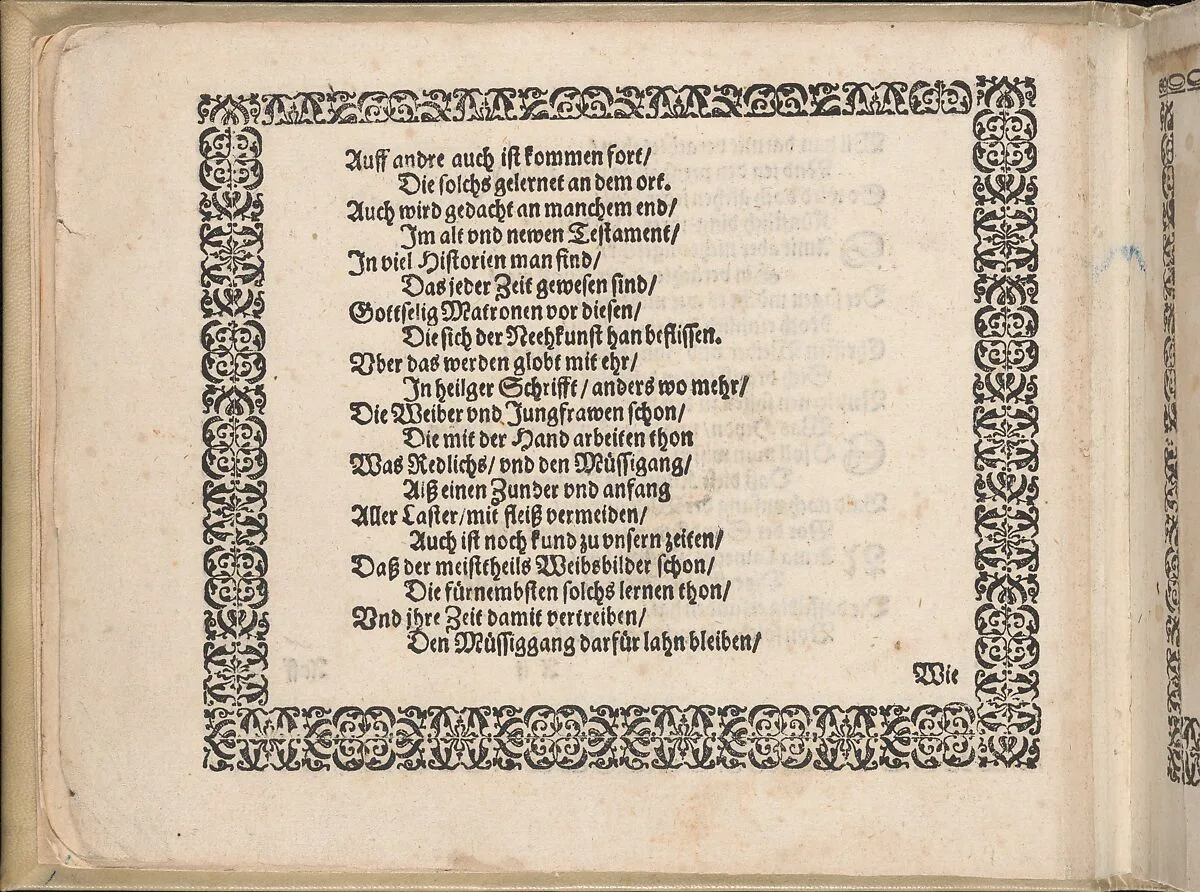 Auff andre auch ist kommen fort/
Die solchs gelernet an dem ort.
Auch wird gedacht an manchem end/
Im alt vnd newen Testament/
In viel Historien man find/
Das jeder Zeit gewesen sind/
Gottselig Matronen vor diesen/
Die sich der Neehkunst han beflissen.
Vber das werden globt mit ehr/
In heilger Schrifft/ anders wo mehr/
Die Weiber vnd Jungfrawen schon/
Die mit der Hand arbeiten thon
Was Redlichs/ vnd den Müssigang/
Alß einen Zunder vnd anfang
Aller Laster/ mit fleiß vermeiden/
Auch ist noch kund zu vnsern zeiten/
Daß der meisttheils Weibsbilder schon/
Die fürnembsten solchs lernen thon/
Vnd ihre Zeit damit vertreiben/
Den Müssiggang darfür lahn bleiben/
Wie